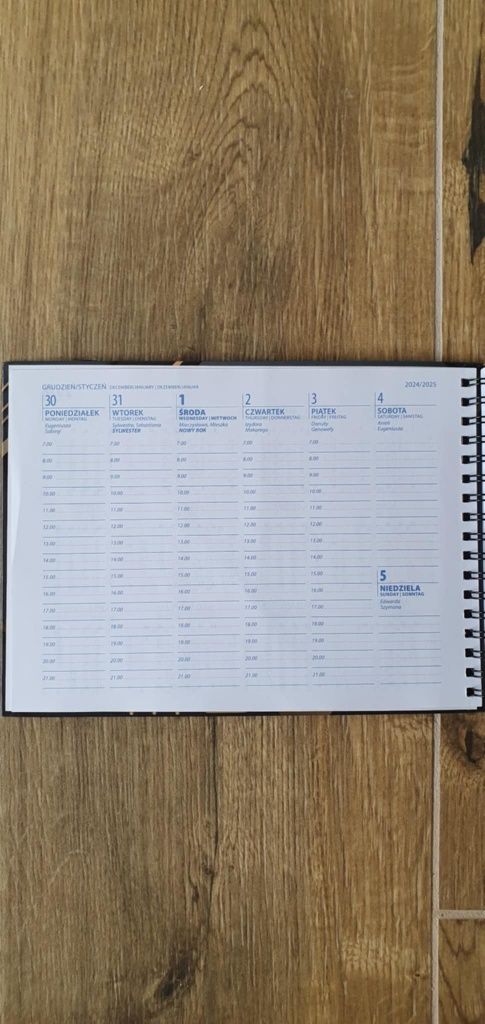 GRUDZIEŃ/STYCZEŃ DECEMBER/JANUARY | DEZEMBER/JANUAR
2024/2025
30
PONIEDZIAŁEK
MONDAY | MONTAG
Eugeniusza
Sabiny
7.00
8.00
9.00
10.00
11.00
12.00
13.00
14.00
15.00
16.00
17.00
18.00
19.00
20.00
21.00
31
WTOREK
TUESDAY | DIENSTAG
Sylwestra, Sebastiana
SYLWESTER
7.00
8.00
9.00
10.00
11.00
12.00
13.00
14.00
15.00
16.00
17.00
18.00
19.00
20.00
21.00
1
ŚRODA
WEDNESDAY | MITTWOCH
Mieczysława, Mieszka
NOWY ROK
7.00
8.00
9.00
10.00
11.00
12.00
13.00
14.00
15.00
16.00
17.00
18.00
19.00
20.00
21.00
2
CZWARTEK
THURSDAY | DONNERSTAG
Izydora
Makarego
7.00
8.00
9.00
10.00
11.00
12.00
13.00
14.00
15.00
16.00
17.00
18.00
19.00
20.00
21.00
3
PIĄTEK
FRIDAY | FREITAG
Danuty
Genowefy
7.00
8.00
9.00
10.00
11.00
12.00
13.00
14.00
15.00
16.00
17.00
18.00
19.00
20.00
21.00
4
SOBOTA
SATURDAY | SAMSTAG
Anieli
Eugeniusza
5
NIEDZIELA
SUNDAY | SONNTAG
Edwarda
Szymona